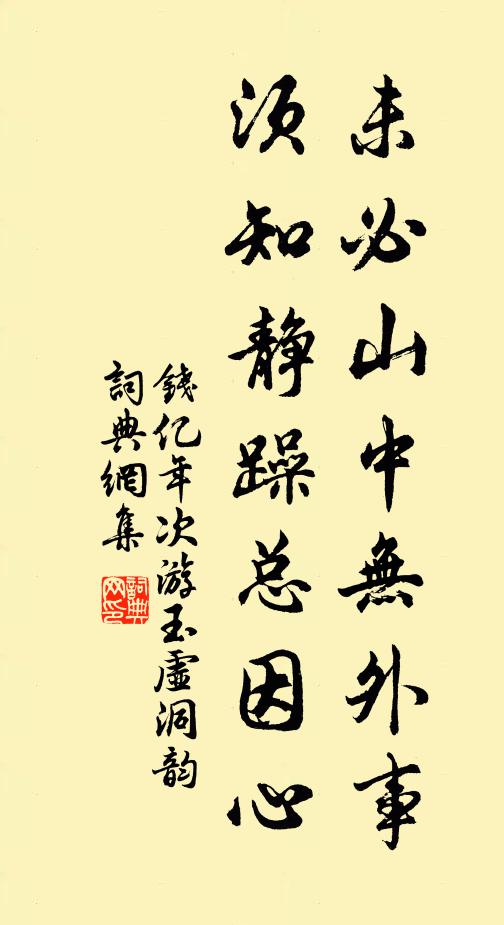 未必山中無外事
須知静躁总因心
錢亿年次游玉虛洞韵
詞典網集
詞典網印